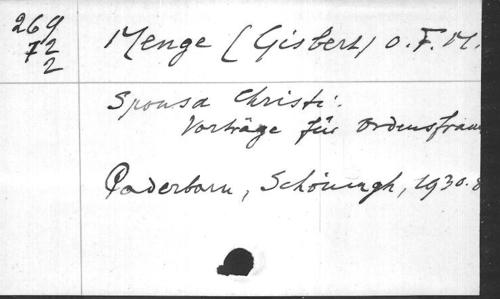 269
72
2
Menge (Gisbert) O.F.M.
Sponsa Christi.
Vorträge für Ordensfrau
Paderborn, Schöningh, 1930. 8